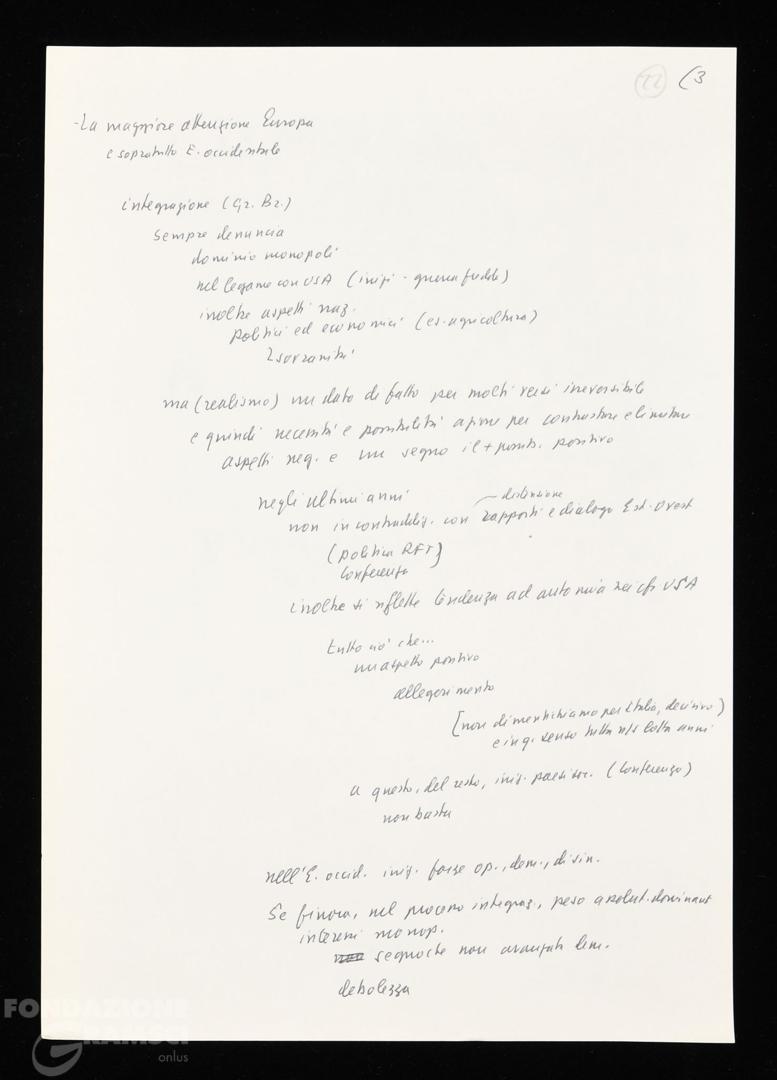 22 (3
- La maggiore attenzione Europa
e sopratutto E. occidentale
integrazione (Gr. Br.)
sempre denuncia
dominio monopoli
nel legame con USA (inizi - guerra fredda)
inoltre aspetti naz.
politici ed economici (es. agricoltura)
sovranità
ma (realismo) un dato di fatto per molti versi irreversibile
e quindi necessità e possibilità azione per contrastare eliminare
aspetti neg. e un segno il + possib. positivo
negli ultimi anni
distensione
non in contraddiz. con rapporti e dialogo Est-Ovest
(politica RFT)
Conferenza
inoltre si riflette tendenza ad autonomia nei cfr USA
tutto ciò che...
un aspetto positivo
alleggerimento
[non dimentichiamo per Italia, decisivo)
e in q. senso tutta ns lotta anni
a questo, del resto, iniz. paesi soc. (Conferenza)
non basta
nell'E. occid. iniz. forze op., dem., di sin.
Se finora, nel processo integraz., peso assolut. dominant
interessi monop.
segno che non avanzata dem.
debolezza
FONDAZIONE
GRAMSCI
onlus